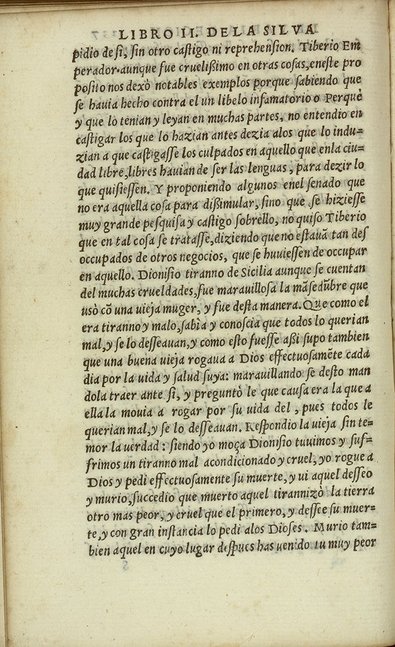 LIBRO II. DE LA SILVA
pidio de si, sin otro castigo ni reprehension. Tiberio Em
perador aunque fue cruelißimo en otras cosas, eneste pro
posito nos dexò notables exemplos porque sabiendo que
se hauia hecho contra el un libelo infamatorio o Perque
y que lo tenian y leyan en muchas partes, no entendio en
castigar los que lo hazian antes dezia alos que lo indu-
zian a que castigasse los culpados en aquello que enla ciu-
dad libre, libres hauian de ser las lenguas, para dezir lo
que quisiessen. Y proponiendo algunos enel senado que
no era aquella cosa para dißimular, sino que se hiziesse
muy grande pesquisa y castigo sobrello, no quiso Tiberio
que en tal cosa se tratasse, diziendo que no estauã tan des
occupados de otros negocios, que se huuiessen de occupar
en aquello. Dionisio tiranno de Sicilia aunque se cuentan
del muchas crueldades, fue marauillosa la mãsedũbre que
usò cõ una vieja muger, y fue desta manera. Que como el
era tiranno y malo, sabia y conoscia que todos lo querian
mal, y se lo desseauan, y como esto fuesse aßi supo tambien
que una buena vieja rogaua a Dios effectuosamẽte cada
dia por la vida y salud suya: marauillando se desto man
dola traer ante si, y preguntò le que causa era la que a
ella la mouia a rogar por su vida del, pues todos le
querian mal, y se lo desseauan. Respondio la vieja sin te-
mor la verdad: siendo yo moça Dionisio tuuimos y suf-
frimos un tiranno mal acondicionado y cruel, yo rogue a
Dios y pedi effectuosamente su muerte, y ui aquel desseo
y murio, succedio que muerto aquel tirannizò la tierra
otro mas peor, y cruel que el primero, y dessee su muer-
te, y con gran instancia lo pedi alos Dioses. Murio tam-
bien aquel en cuyo lugar despues has uenido tu muy peor